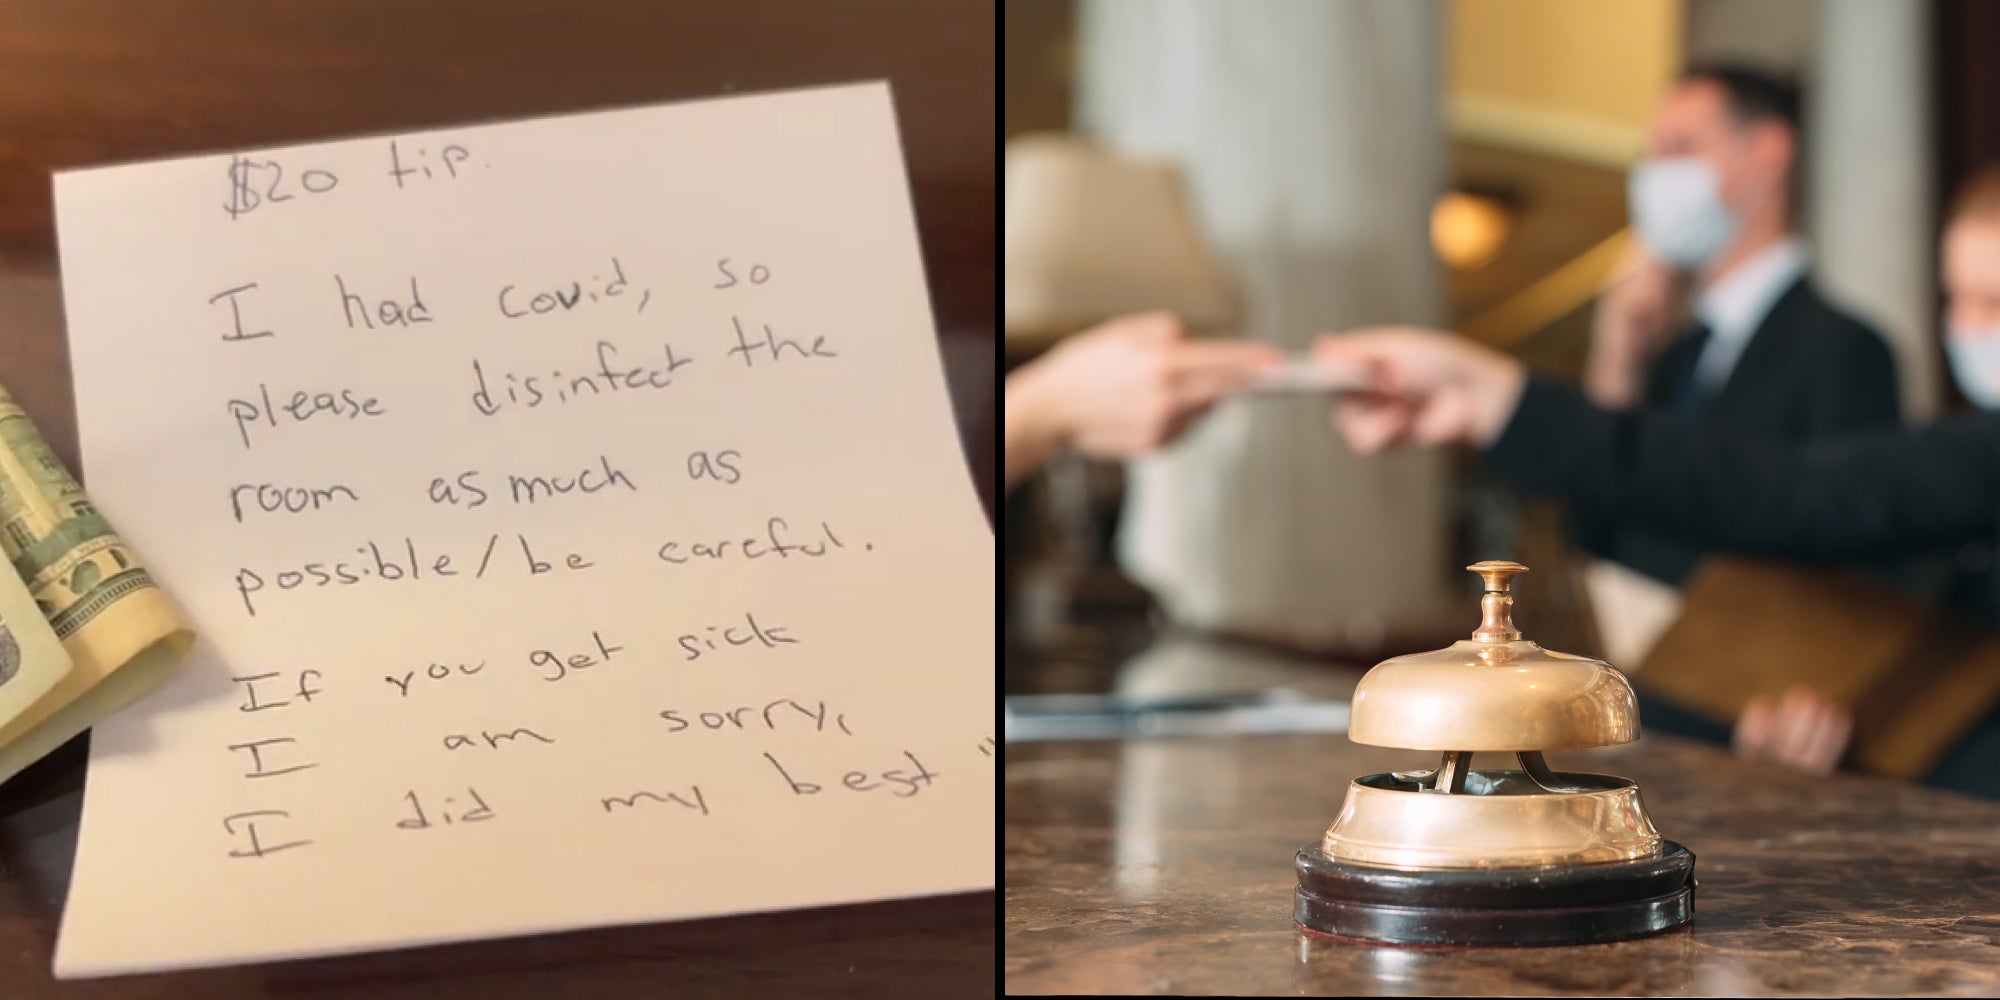 $20 tip.
I had covid, so
please disinfect the
room as much as
possible/be careful.
If you get sick
I am sorry,
I did my best "